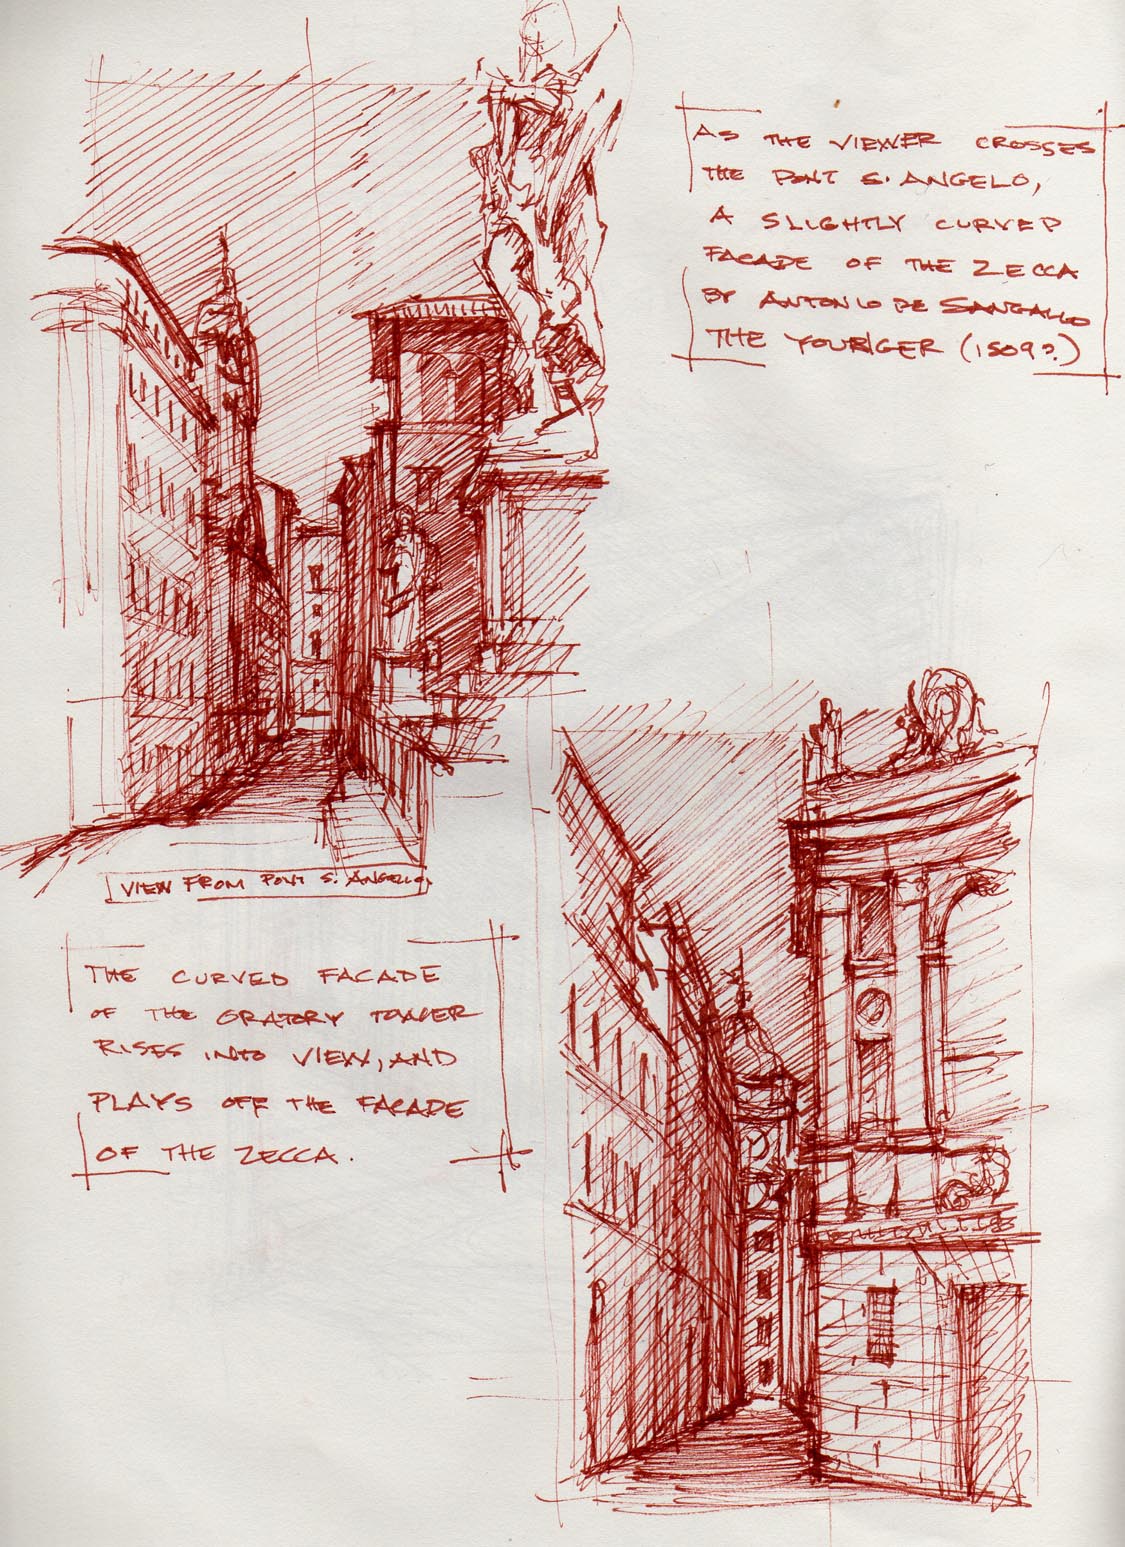 AS THE VIEWER CROSSES
THE PONT S. ANGELO,
A SLIGHTLY CURVED
FACADE OF THE ZECCA
BY ANTONIO DE SANGALLO
THE YOUNGER (1509?)
VIEW FROM PONT S. ANGELO.
THE CURVED FACADE
OF THE ORATORY TOWER
RISES INTO VIEW, AND
PLAYS OFF THE FACADE
OF THE ZECCA.